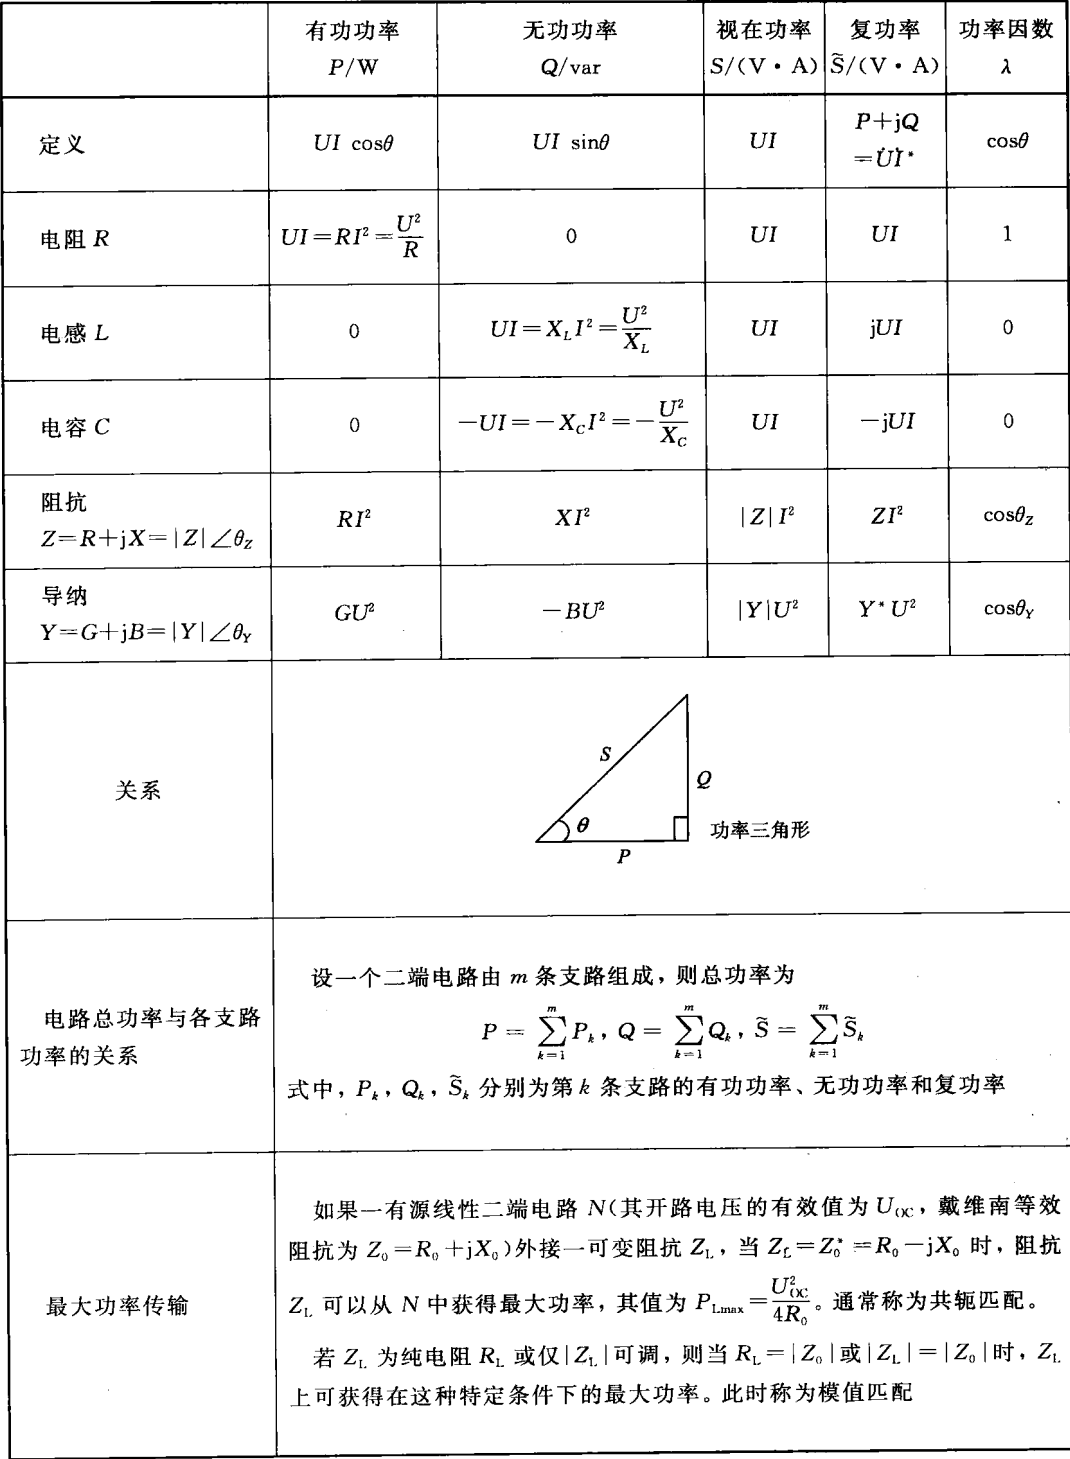 有功功率 无功功率 视在功率 复功率 功率因数
P/W Q/var S/(V·A) S̃/(V·A) λ
定义 UI cosθ UI sinθ UI P+jQ =U̇İ* cosθ
电阻 R UI=RI²=U²/R 0 UI UI 1
电感 L 0 UI=X_L I²=U²/X_L UI jUI 0
电容 C 0 −UI=−X_C I²=−U²/X_C UI −jUI 0
阻抗
Z=R+jX=|Z|∠θ_Z RI² XI² |Z|I² ZI² cosθ_Z
导纳
Y=G+jB=|Y|∠θ_Y GU² −BU² |Y|U² Y*U² cosθ_Y
关系
S
Q
θ
P
功率三角形
电路总功率与各支路
功率的关系
设一个二端电路由 m 条支路组成，则总功率为
P = ∑_{k=1}^{m} P_k，Q = ∑_{k=1}^{m} Q_k，S̃ = ∑_{k=1}^{m} S̃_k
式中，P_k，Q_k，S̃_k 分别为第 k 条支路的有功功率、无功功率和复功率
最大功率传输
如果一有源线性二端电路 N(其开路电压的有效值为 U_OC，戴维南等效
阻抗为 Z₀=R₀+jX₀)外接一可变阻抗 Z_L，当 Z_L=Z₀*=R₀−jX₀ 时，阻抗
Z_L 可以从 N 中获得最大功率，其值为 P_Lmax=U²_OC/4R₀。通常称为共轭匹配。
若 Z_L 为纯电阻 R_L 或仅|Z_L|可调，则当 R_L=|Z₀|或|Z_L|=|Z₀|时，Z_L
上可获得在这种特定条件下的最大功率。此时称为模值匹配